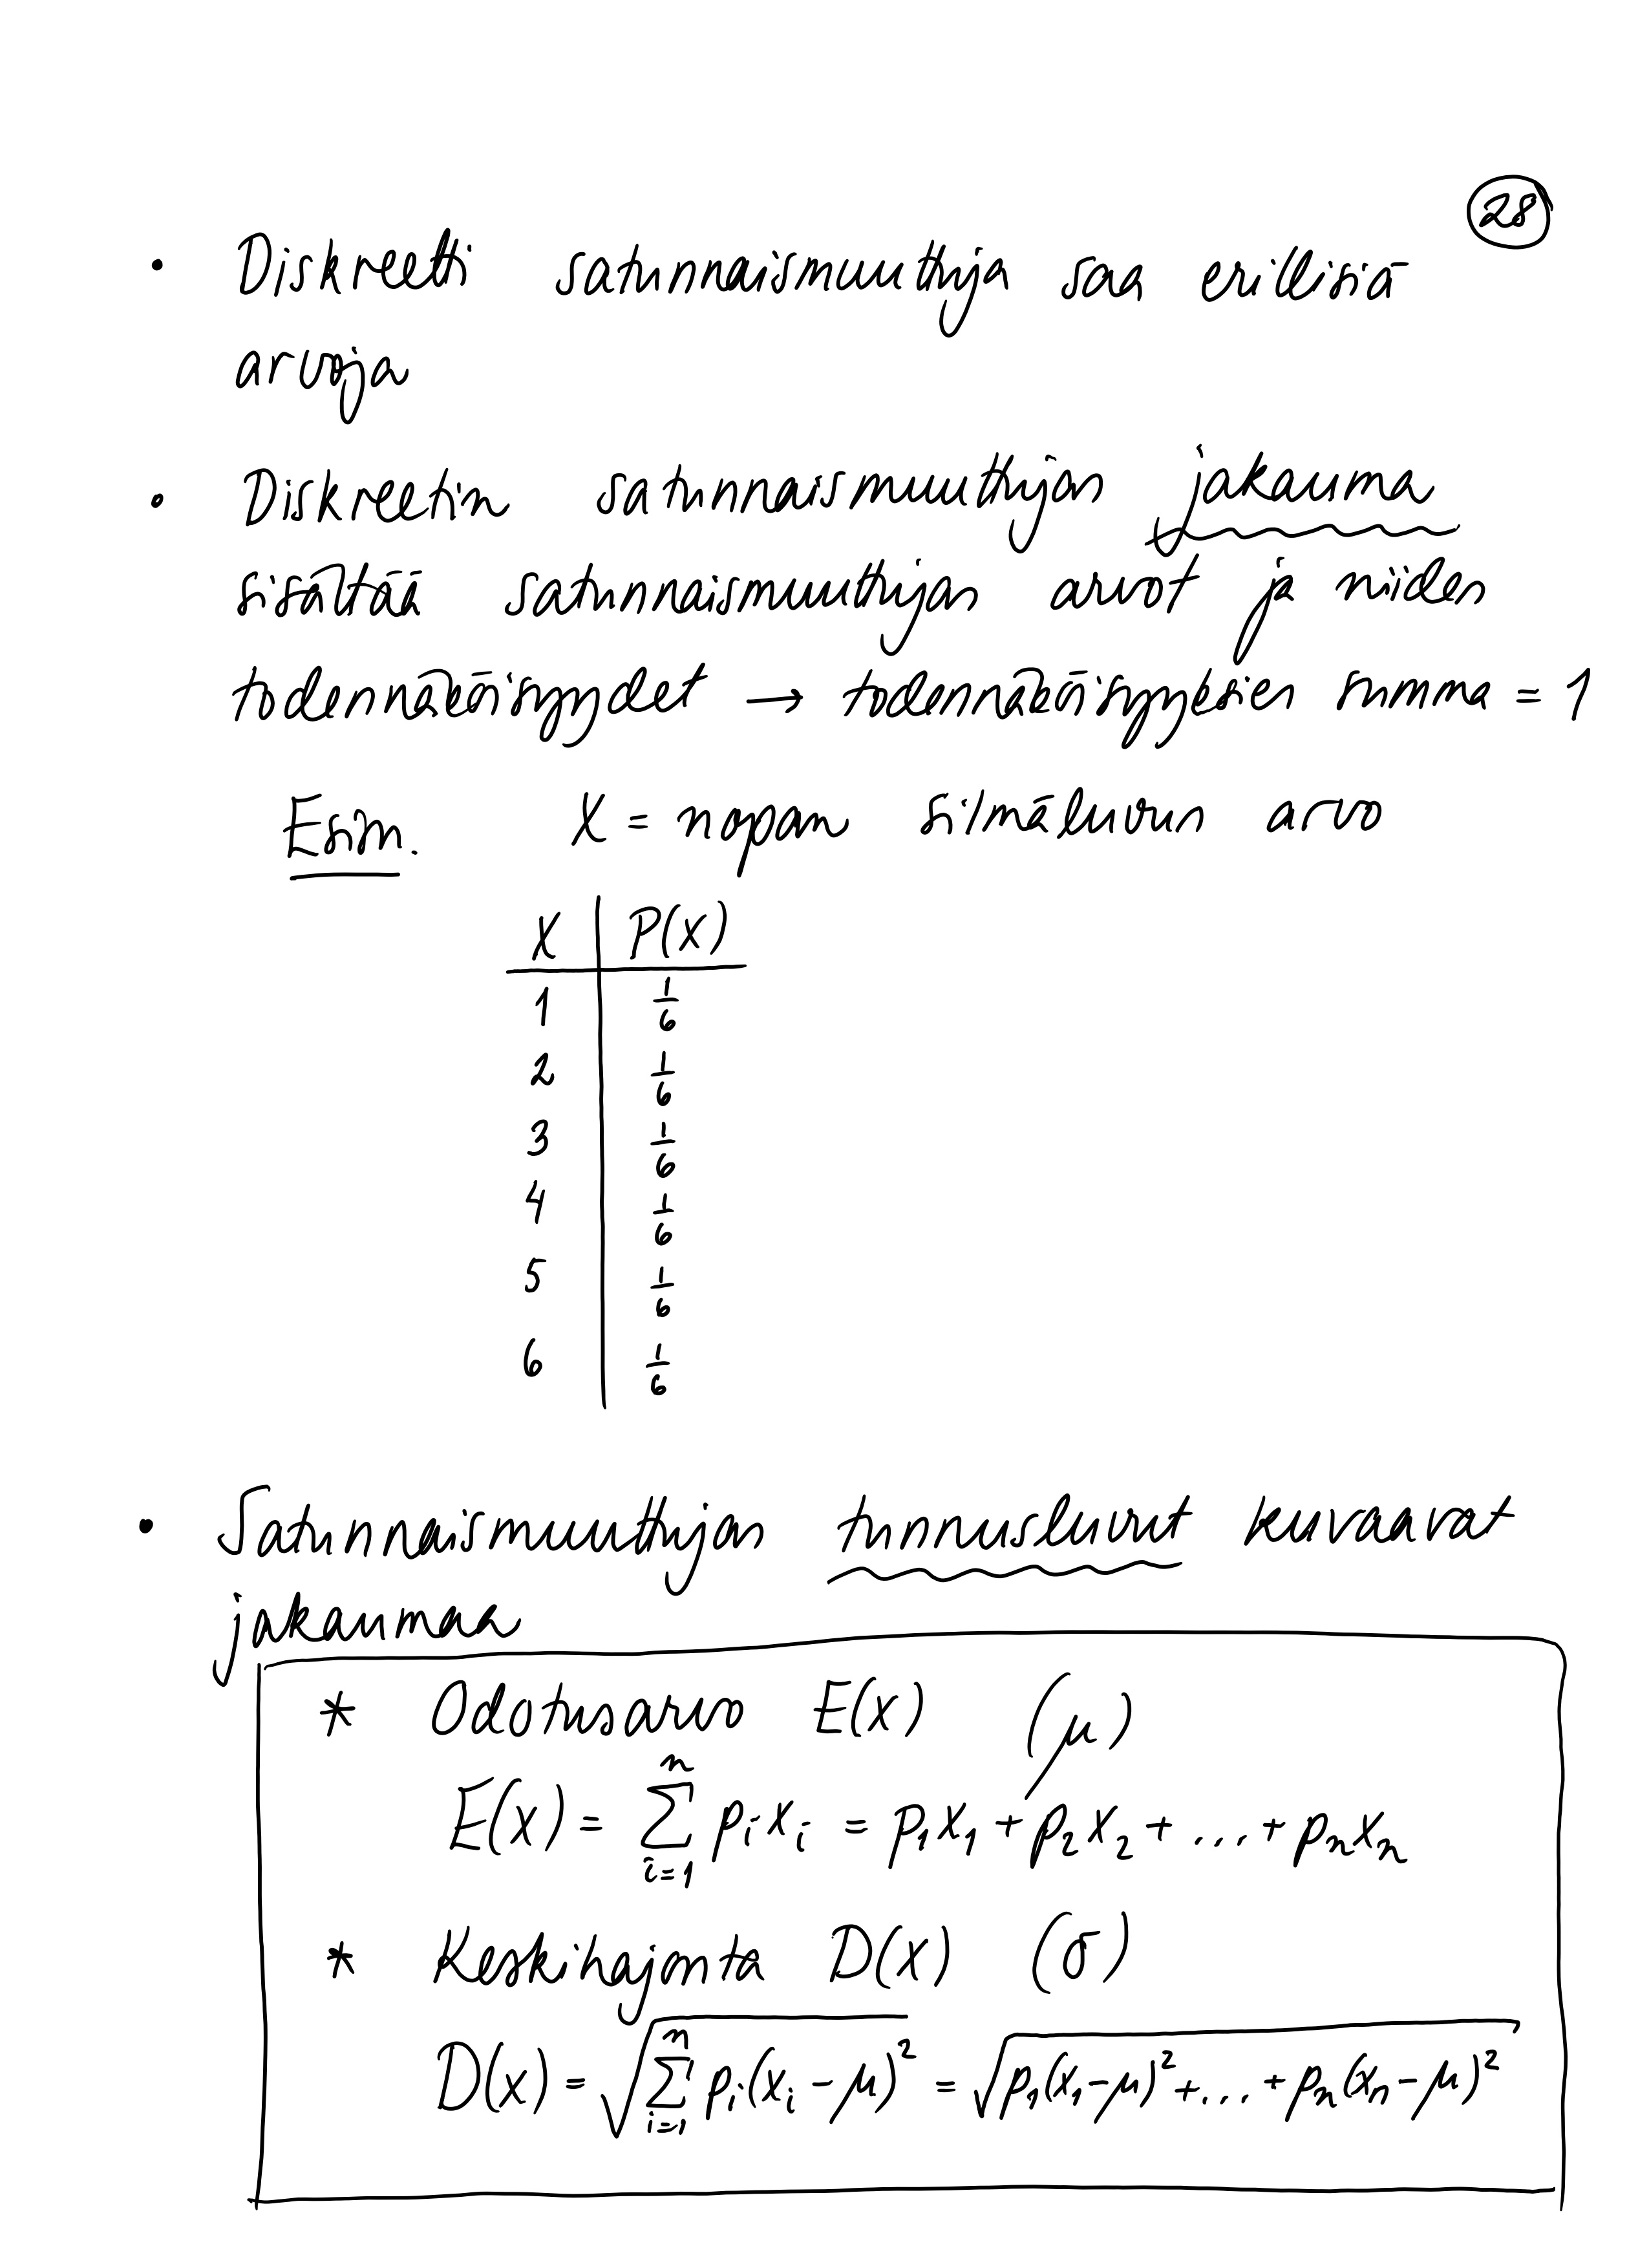 28
• Diskreetti satunnaismuuttuja saa erillisiä
arvoja
• Diskreetin satunnaismuuttujan jakauma
sisältää satunnaismuuttujan arvot ja niiden
todennäköisyydet → todennäköisyyksien summa = 1
Esim. X = nopan silmäluvun arvo
X | P(X)
1 | 1/6
2 | 1/6
3 | 1/6
4 | 1/6
5 | 1/6
6 | 1/6
• Satunnaismuuttujan tunnusluvut kuvaavat
jakaumaa
* Odotusarvo E(X) (μ)
E(X) = ∑_{i=1}^{n} p_i x_i = p_1 x_1 + p_2 x_2 + ... + p_n x_n
* Keskihajonta D(X) (σ)
D(X) = √(∑_{i=1}^{n} p_i (x_i - μ)²) = √(p_1 (x_1 - μ)² + ... + p_n (x_n - μ)²)